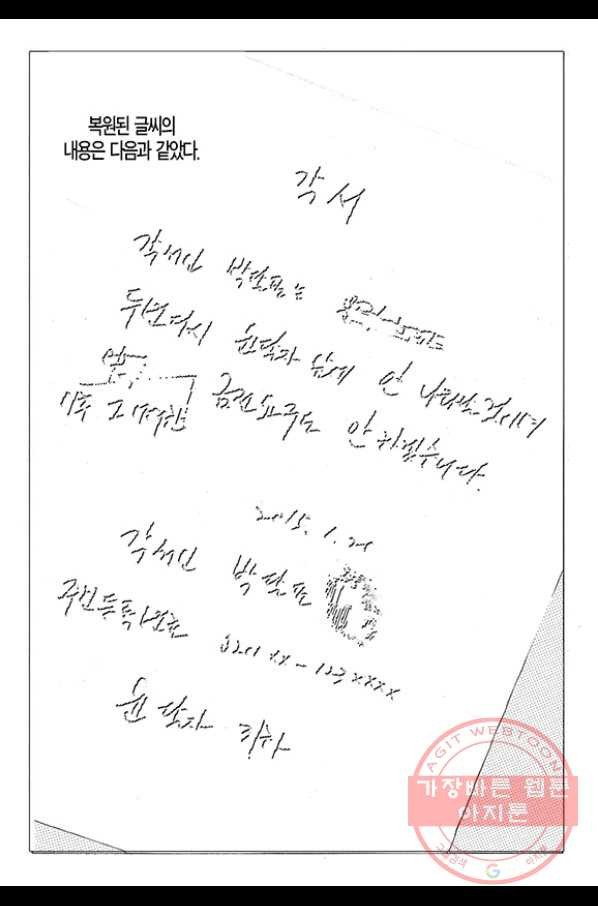 복원된 글씨의
내용은 다음과 같았다.
각서
각서인 박달포는
두번다시 윤달자 님께 안 나타날 것이며
금전요구도 안 하겠습니다.
2015. 1. 21
각서인 박달포
주민등록번호
윤달자 귀하
AGIT WEBTOON
가장빠른 웹툰
아지툰
구글검색 G 아지툰